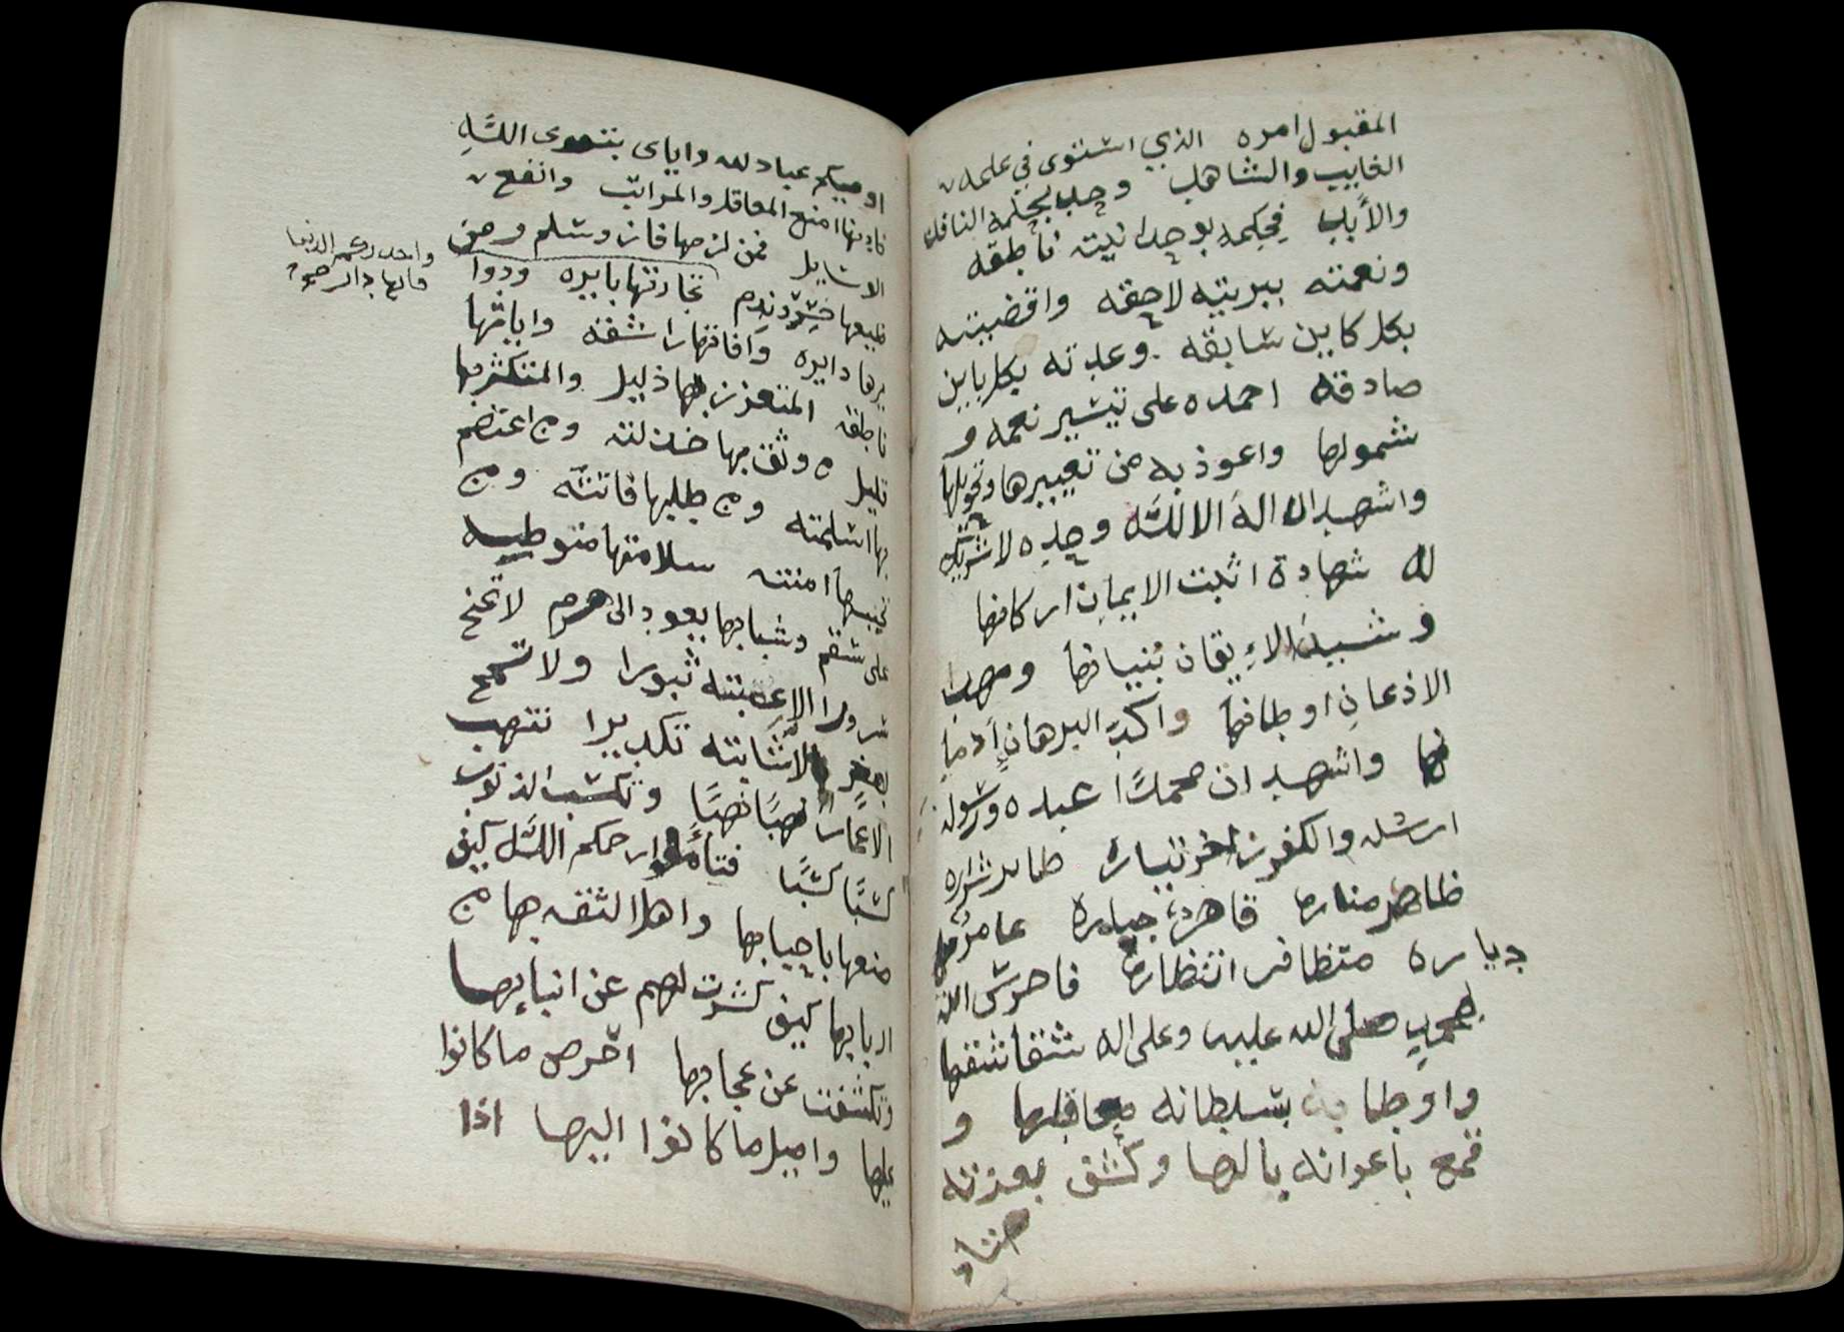 المقبول امره الذي استوى في علمه
الغايب والشاهد وحد بحكمه النافد
والأبد فحكمه بوحدانيته ناطقه
ونعمته ببريته لاحقه واقضيته
بكل كاين سابقه وعدته بكل باين
صادقه احمده على تيسير نعمه و
شمولها واعوذ به من تغييرها وتحويلها
واشهد ان اله الا الله وحده لا شريك
له شهادة اثبت الايمان اركانها
وشيد الإيقان بنيانها ومهد
الاذعان اوطانها واكد البرهان
نها واشهد ان محمدًا عبده ورسوله
ارسله والكفر
ظاهر مناره قاهر جباره عامره
دياره متظافر انتظاره فاحرس الله
بمحمد صلى الله عليه وعلى اله شقاشقها
واوطا بسلطانه معاقلها و
قمع باعوانه بالها وكشف بعزته
اوصيكم عباد الله واياى بتقوى الله
فانها امنع المعاقل والمراتب وانفع
الوسايل فمن لزمها فاز وسلم ومن
ضيعها خسر وندم تجارتها بايره
دايره وافاتها راشقه واياتها
ناطقه المتعزز بها ذليل والمتكثر بها
قليل من وثق بها خذلته ومن اعتصم
بها اسلمته ومن طلبها فاتته ومن
امنته سلامتها منوطه
على سقم وشبابها يعود الى هرم لا تمنح
سرورا الا عقبته ثبورا ولا تسمح
الا شابته تكديرا تنتهب
الاعمار نهبًا نهبًا وتكسب الذنوب
كسبًا كسبًا فتأملوا رحمكم الله كيف
صنعها باحبابها واهل الثقه بها من
اربابها كيف كشرت لهم عن انيابها
وكشفت عن عجابها احرص ما كانوا
عليها واميل ما كانوا اليها اذا